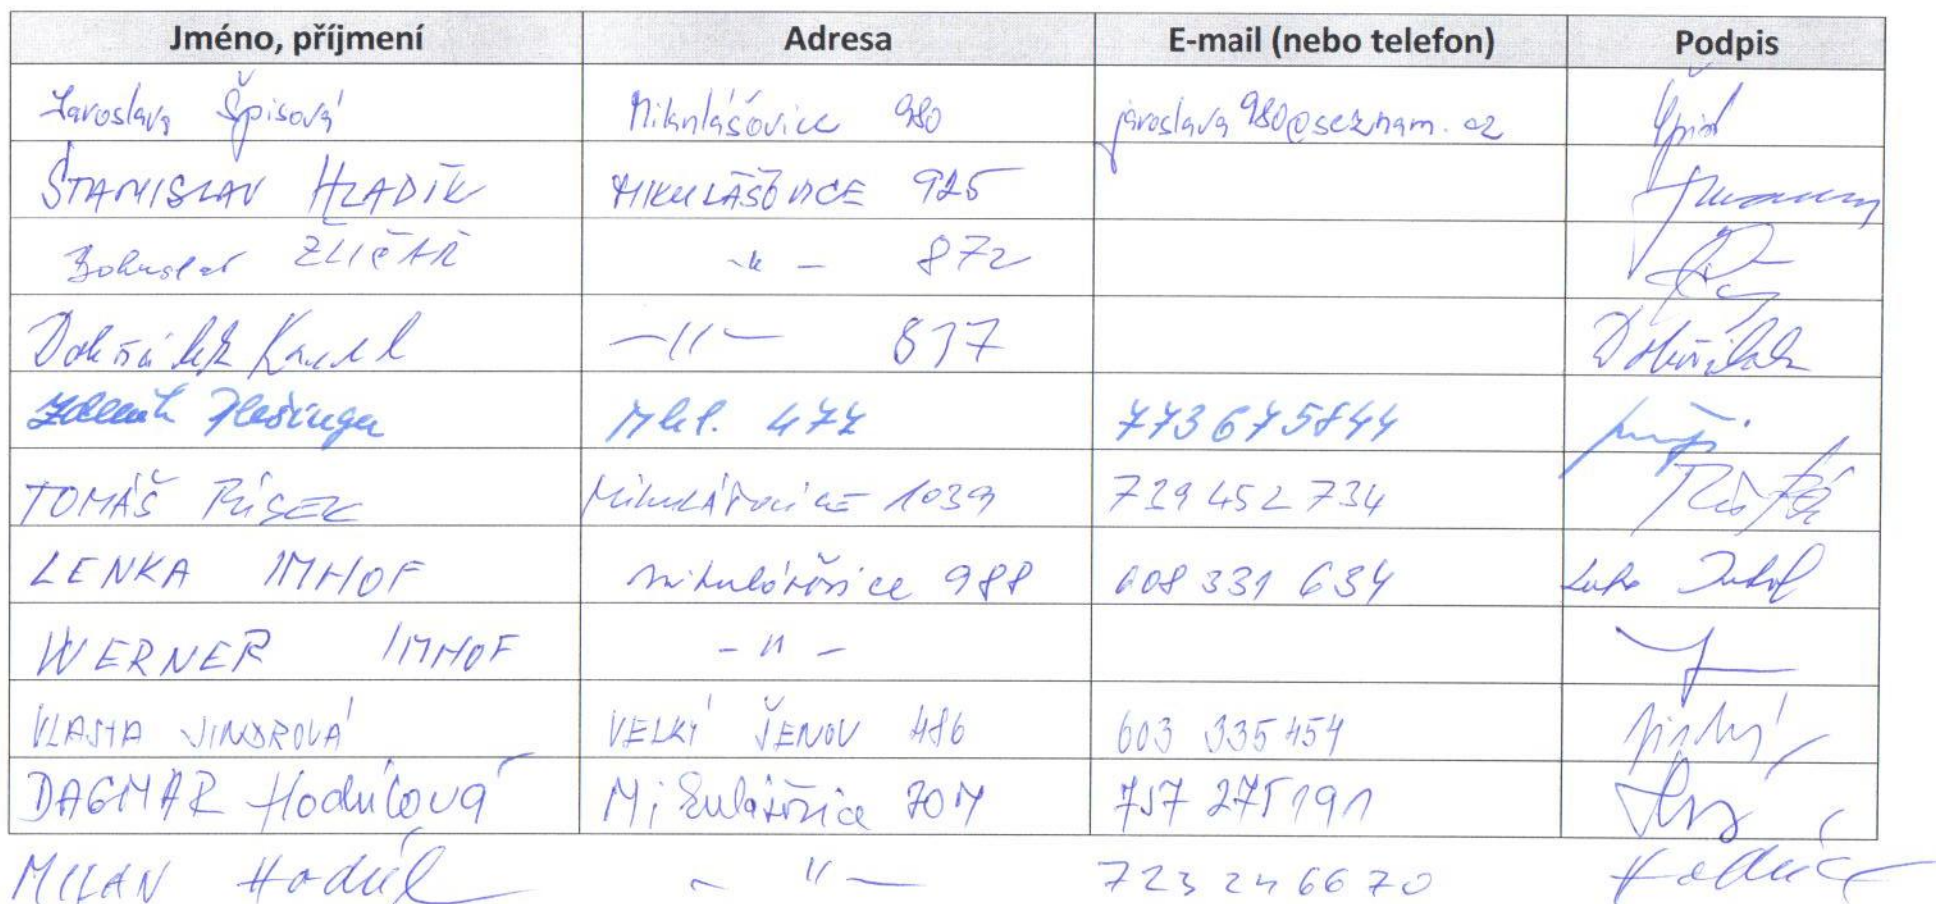 Jméno, příjmení Adresa E-mail (nebo telefon) Podpis
Jaroslava Špisová Mikulášovice 980 jaroslava980@seznam.cz
STANISLAV HLADÍK MIKULÁŠOVICE 925
Bohuslav ŽLIČAŘ -"- 872
Karel -11- 837
Zdeněk Plešinger Mkl. 477 773675844
TOMÁŠ Mikulášovice 1039 729 452 734
LENKA IMHOF Mikulášovice 988 608 331 634
WERNER IMHOF -"-
VLASTA JINDROVÁ VELKÝ ŠENOV 486 603 335 454
DAGMAR Hodúlová Mikulášovice 757 275 191
MILAN -"- 723 246670